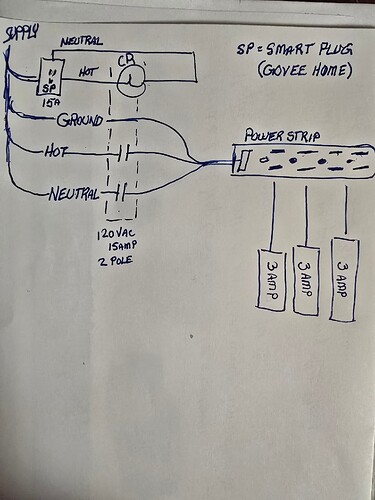 SUPPLY
NEUTRAL
CR
SP = SMART PLUG
(GOVEE HOME)
HOT
SP
15A
GROUND
POWER STRIP
HOT
NEUTRAL
120 VAC
15 AMP
2 POLE
3 AMP
3 AMP
3 AMP